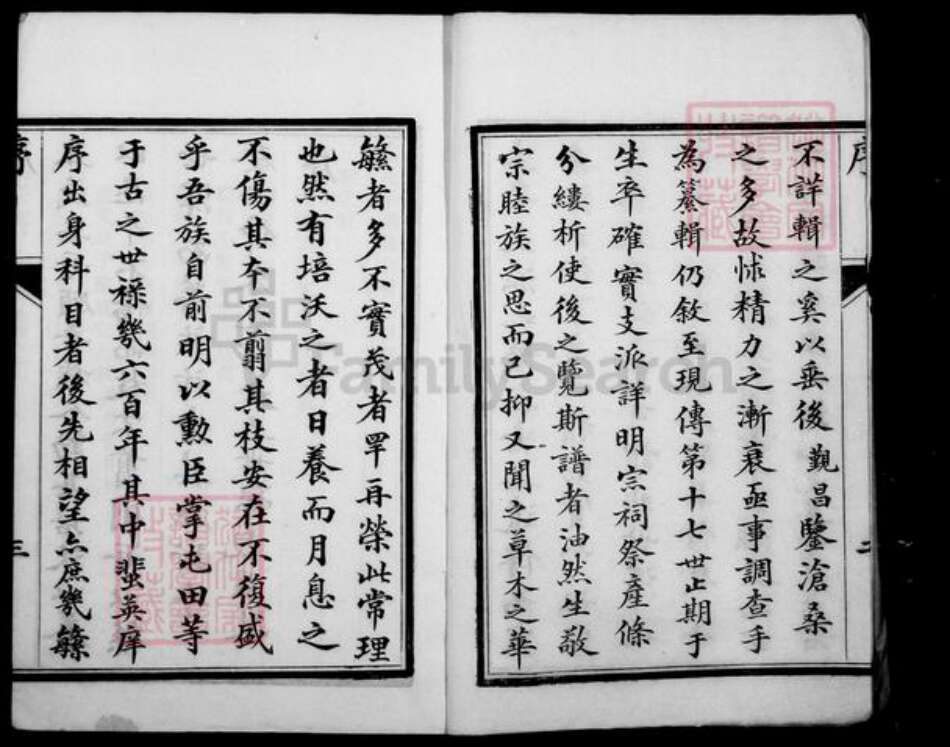 序
不詳輯之奚以垂後覲昌鑒滄桑
之多故悚精力之漸衰亟事調查手
為纂輯仍敘至現傳第十七世止期于
生卒確實支派詳明宗祠祭產條
分縷析使後之覽斯譜者油然生敬
宗睦族之思而已抑又聞之草木之華
二
蘩者多不實茂者罕再榮此常理
也然有培沃之者日養而月息之
不傷其夲不翦其枝安在不復盛
乎吾族自前明以勲臣掌屯田等
于古之世祿幾六百年其中蜚英庠
序出身科目者後先相望亦庶幾蘩
序
三
FamilySearch